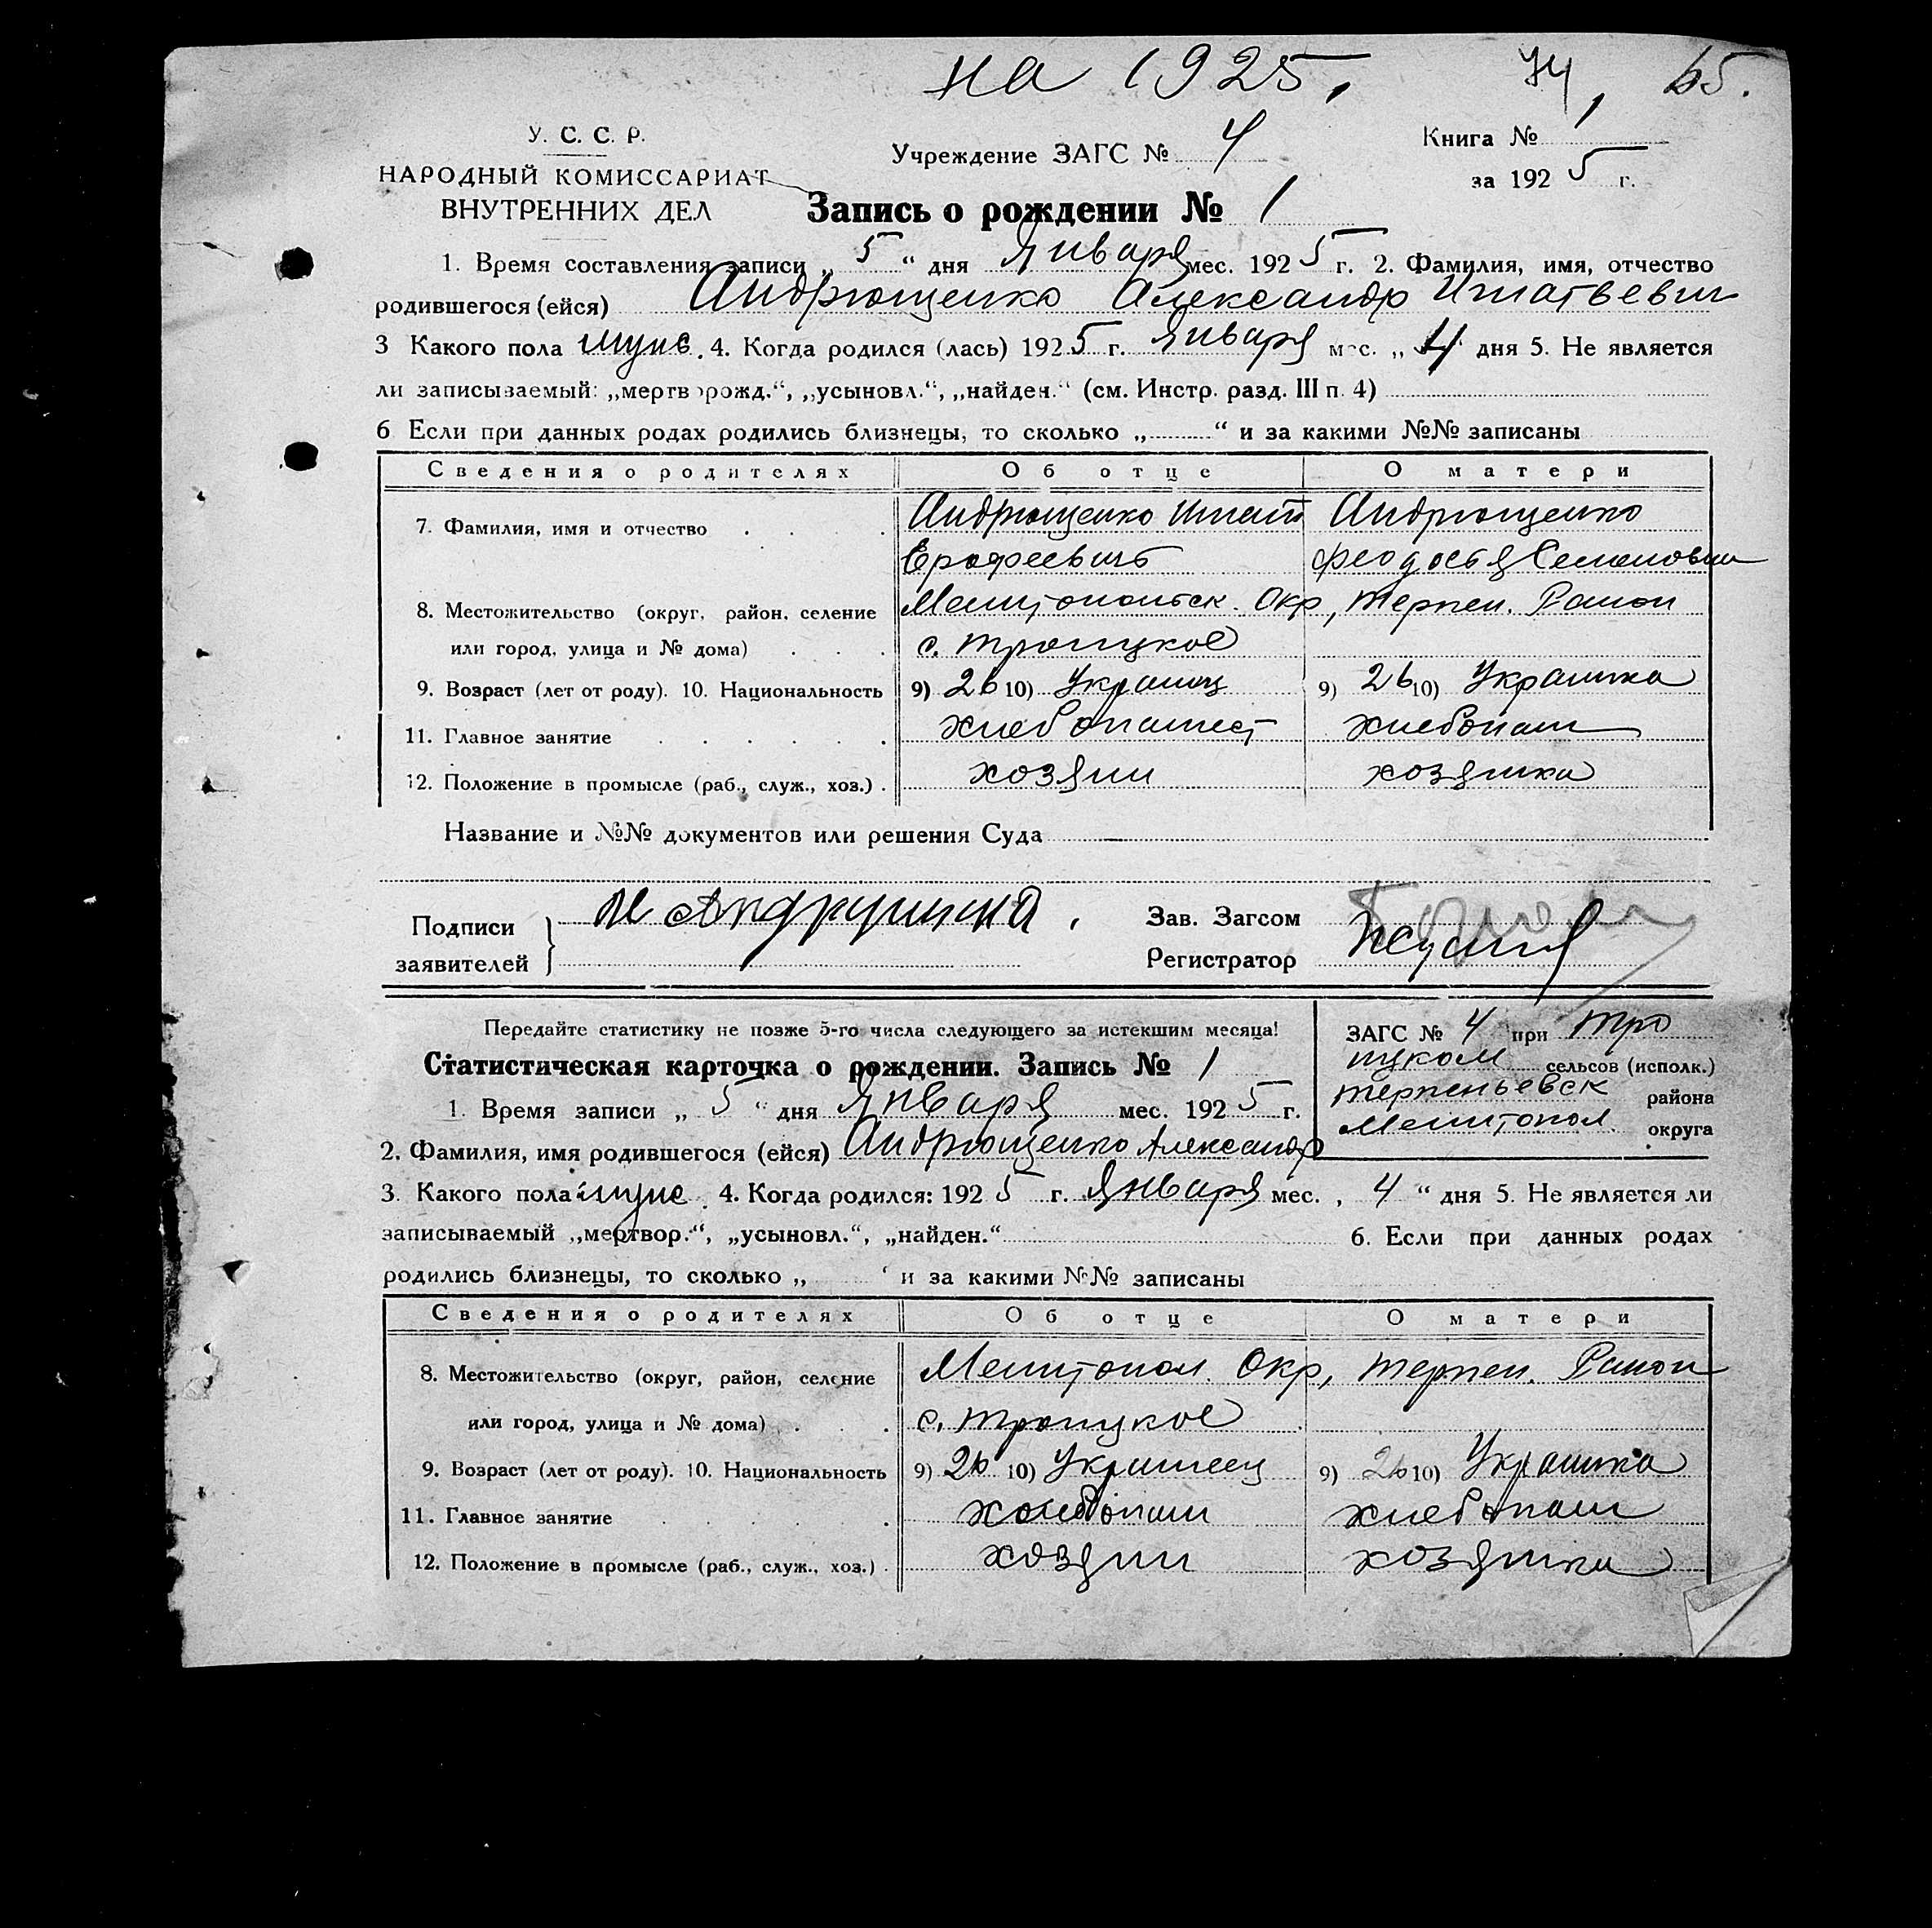 на 1925,
74, 65.
У. С. С. Р.
НАРОДНЫЙ КОМИССАРИАТ
ВНУТРЕННИХ ДЕЛ
Учреждение ЗАГС № 4
Книга № 1
за 1925 г.
Запись о рождении № 1
1. Время составления записи „ 5 “ дня Января мес. 1925 г. 2. Фамилия, имя, отчество
родившегося (ейся) Андрющенко Александр Игнатьевич
3 Какого пола муж. 4. Когда родился (лась) 1925 г. Января мес. „ 4 дня 5. Не является
ли записываемый: „мертворожд.“, „усыновл.“, „найден.“ (см. Инстр. разд. III п. 4)
6 Если при данных родах родились близнецы, то сколько „ “ и за какими №№ записаны
Сведения о родителях Об отце О матери
7. Фамилия, имя и отчество Андрющенко Игнат Андрющенко
Ерофеевичь Феодосья Семеновна
8. Местожительство (округ, район, селение Мелитопольск. Окр, Терпен. Район
или город, улица и № дома) с. Троицкое
9. Возраст (лет от роду). 10. Национальность 9) 26 10) Украинц 9) 26 10) Украинка
11. Главное занятие хлебопашест хлебопаш
12. Положение в промысле (раб., служ., хоз.) хозяин хозяйка
Название и №№ документов или решения Суда
Подписи
заявителей
И Андрущенка,
Зав. Загсом
Регистратор
Передайте статистику не позже 5-го числа следующего за истекшим месяца!
Статистическая карточка о рождении. Запись № 1
ЗАГС № 4 при Тро
ицком сельсов (исполк.)
Терпеньевск района
Мелитопол. округа
1. Время записи „ 5 “ дня Января мес. 1925 г.
2. Фамилия, имя родившегося (ейся) Андрющенко Александр
3. Какого пола муж. 4. Когда родился: 1925 г. Января мес. , 4 “ дня 5. Не является ли
записываемый „мертвор.“, „усыновл.“, „найден.“ 6. Если при данных родах
родились близнецы, то сколько „ ‘ и за какими №№ записаны
Сведения о родителях Об отце О матери
8. Местожительство (округ, район, селение Мелитопол. Окр, Терпен. Район
или город, улица и № дома) с. Троицкое
9. Возраст (лет от роду). 10. Национальность 9) 26 10) Украинец 9) 26 10) Украинка
11. Главное занятие хлебопаш хлебопаш
12. Положение в промысле (раб., служ., хоз.) хозяин хозяйка